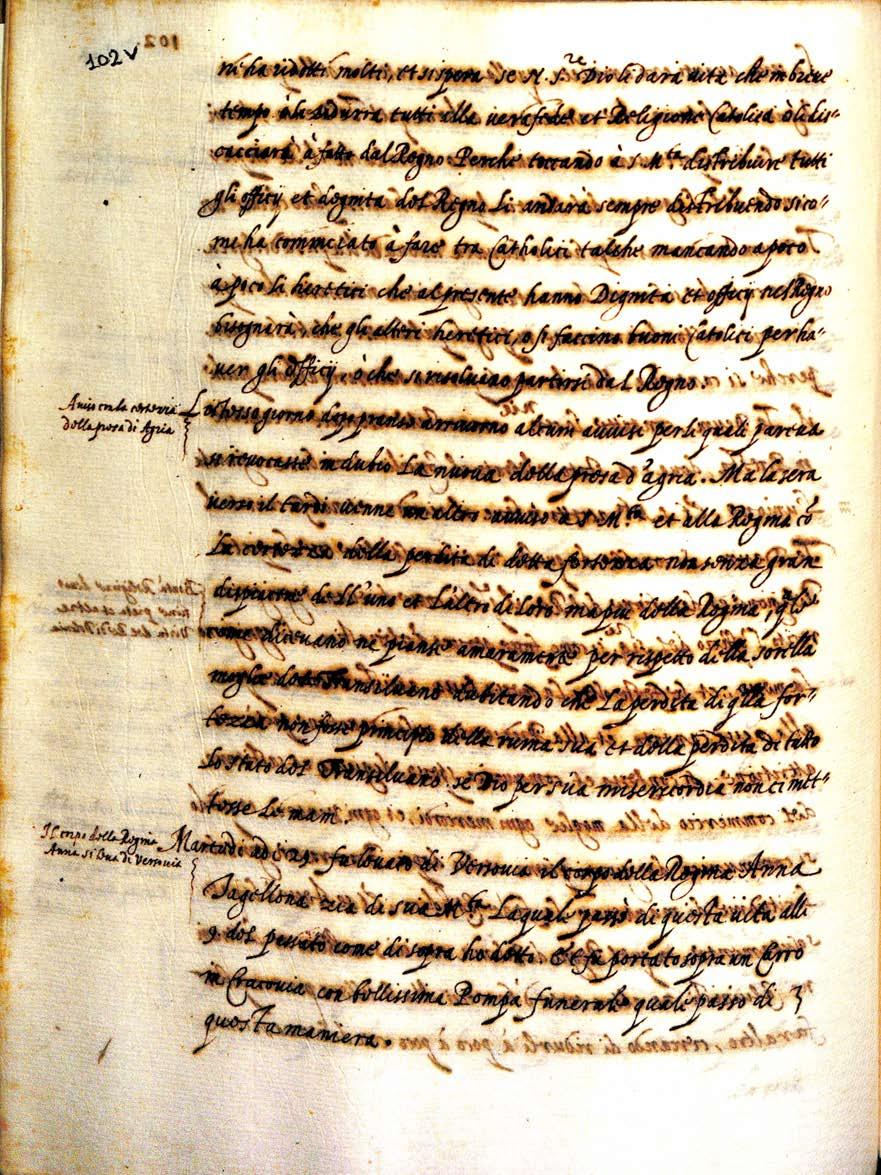 102v
ni ha ridotti molti, et si spera se N. S.re Dio li darà vita che in breve
tempo ò li ridurrà tutti alla vera fede et Religione Catolica ò li dis-
cacciarà à fatto dal Regno. Perche toccando à S. M.tà distribuire tutti
gli officij et degnita del Regno li andarà sempre distribuendo sico-
me ha cominciato à fare tra Catholici talche mancando a poco
à poco li heretici che al presente hanno Dignità et officij nel Regno
bisognarà, che gli alteri heretici, o si faccino buoni Catolici per ha-
ver gli officij, ò che si risolvano partirsi dal Regno.
Aviso con la certezza
della presa di Agria
L istesso giorno dopo pranso arrivorno alcuni avvisi per li quali pareva
si revocasse in dubio la nuova della presa d'agria. Ma la sera
verso il tardi venne un altro avviso à S. M.tà et alla Regina cō
la certezza della perdita di detta fortezza non senza gran
dispiacere dell'uno et l'altro di loro ma piu della Regina
come dicevano ne pianse amaramente per rispetto della sorella
moglie del Transilvano dubitando che la perdita di qlla for-
tezza non fosse principio della ruina sua et della perdita di tutto
lo stato del Transilvano se Dio per sua misericordia non ci met-
tesse le mani.
Il corpo della Regina
Anna si leva di Verrovia
Martedi adi 29. fu levato di Verrovia il corpo della Regina Anna
Jagellona zia di sua M.tà la quale passò di questa vita alli
9 del passato come di sopra ho detto. Et fu portato sopra un Carro
in Cracovia con bellissima Pompa funerale quale passo di
questa maniera.